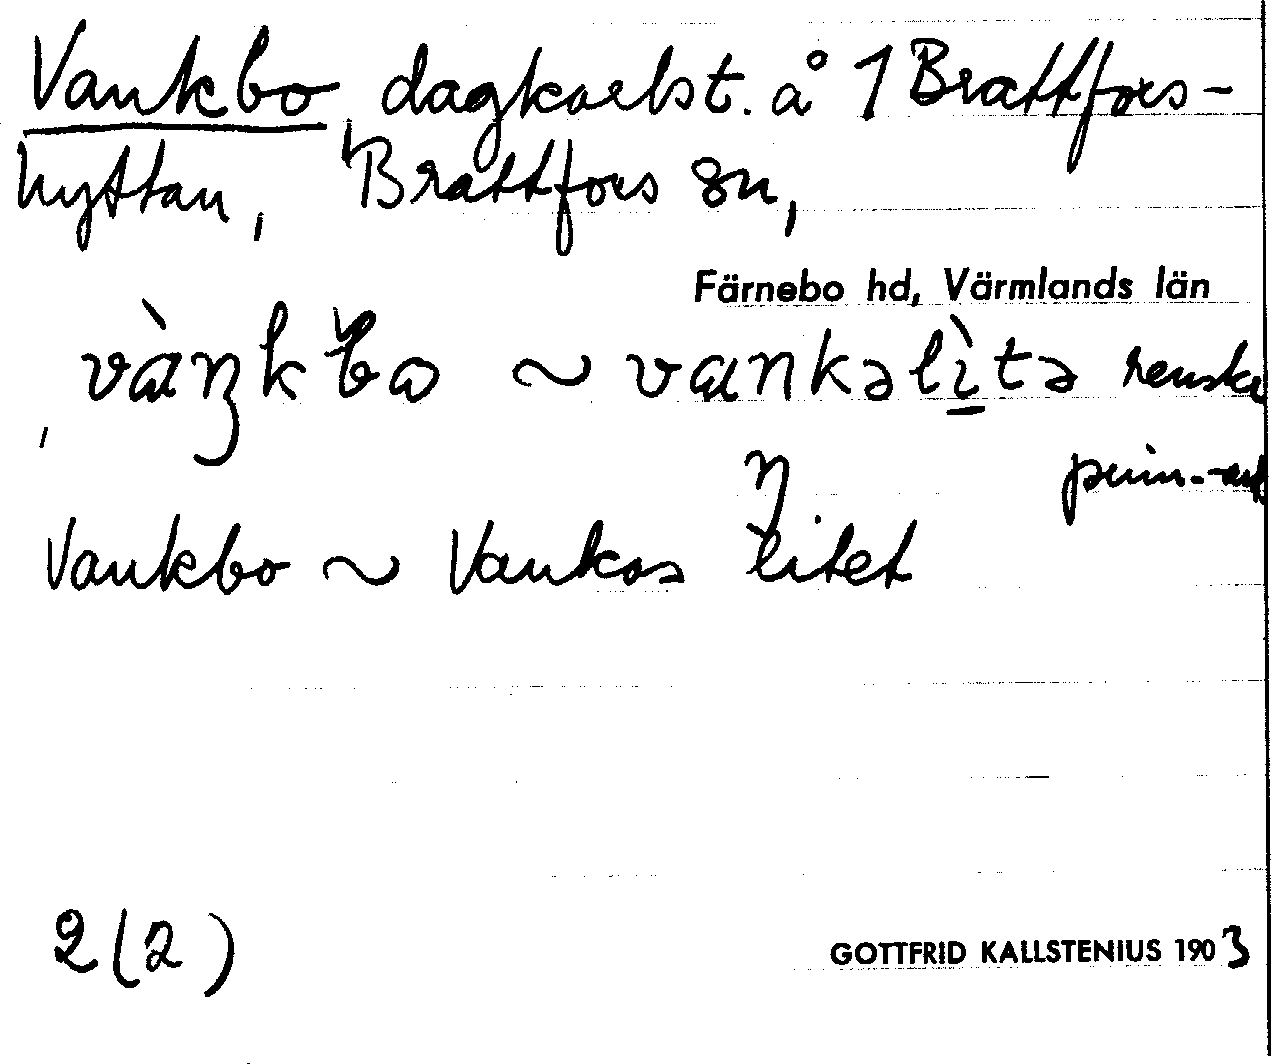 Vankbo dagkarlst. å 1 Brattfors-
hyttan, Brattfors sn,
Färnebo hd, Värmlands län
vàŋkbo ~ vankəlìtə
Vankbo ~ Vankas litet
2(2)
GOTTFRID KALLSTENIUS 1903